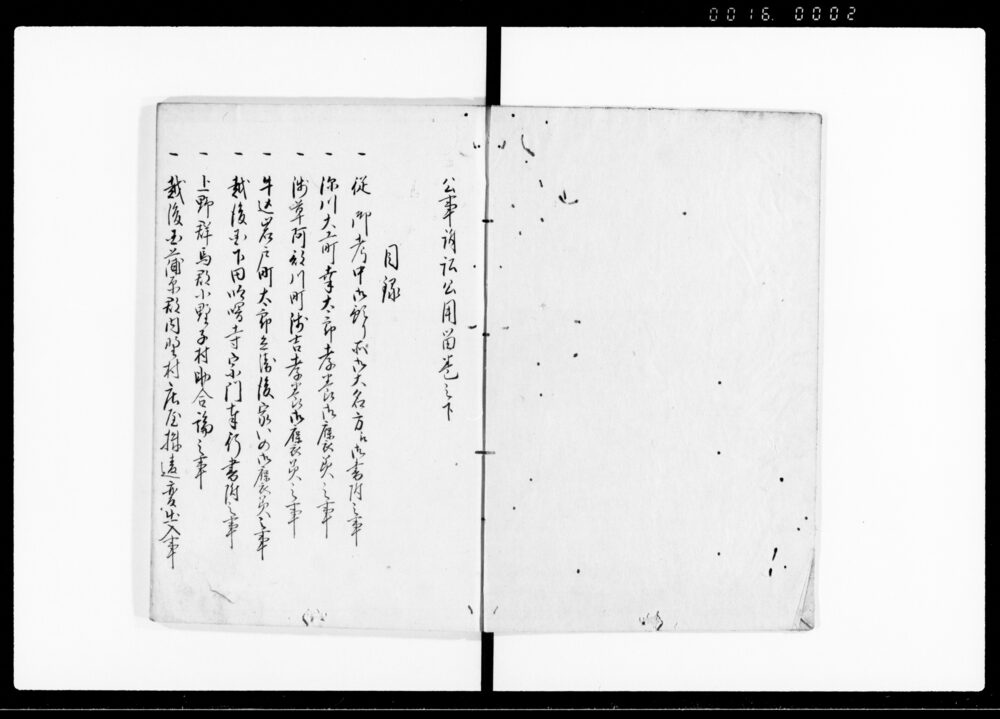 0016. 0002
公事訴訟公用留巻之下
目録
一 従御老中御触前御大名方江御書附之事
一 深川大工町幸太郎孝養御褒美之事
一 浅草阿部川町浅吉孝養御褒美之事
一 牛込岩戸町太郎兵衛後家いの御褒美之事
一 越後国下田 寺宗門奉行書附之事
一 上野群馬郡小野子村助合論之事
一 越後国蒲原郡内野村庄屋 違変出入事